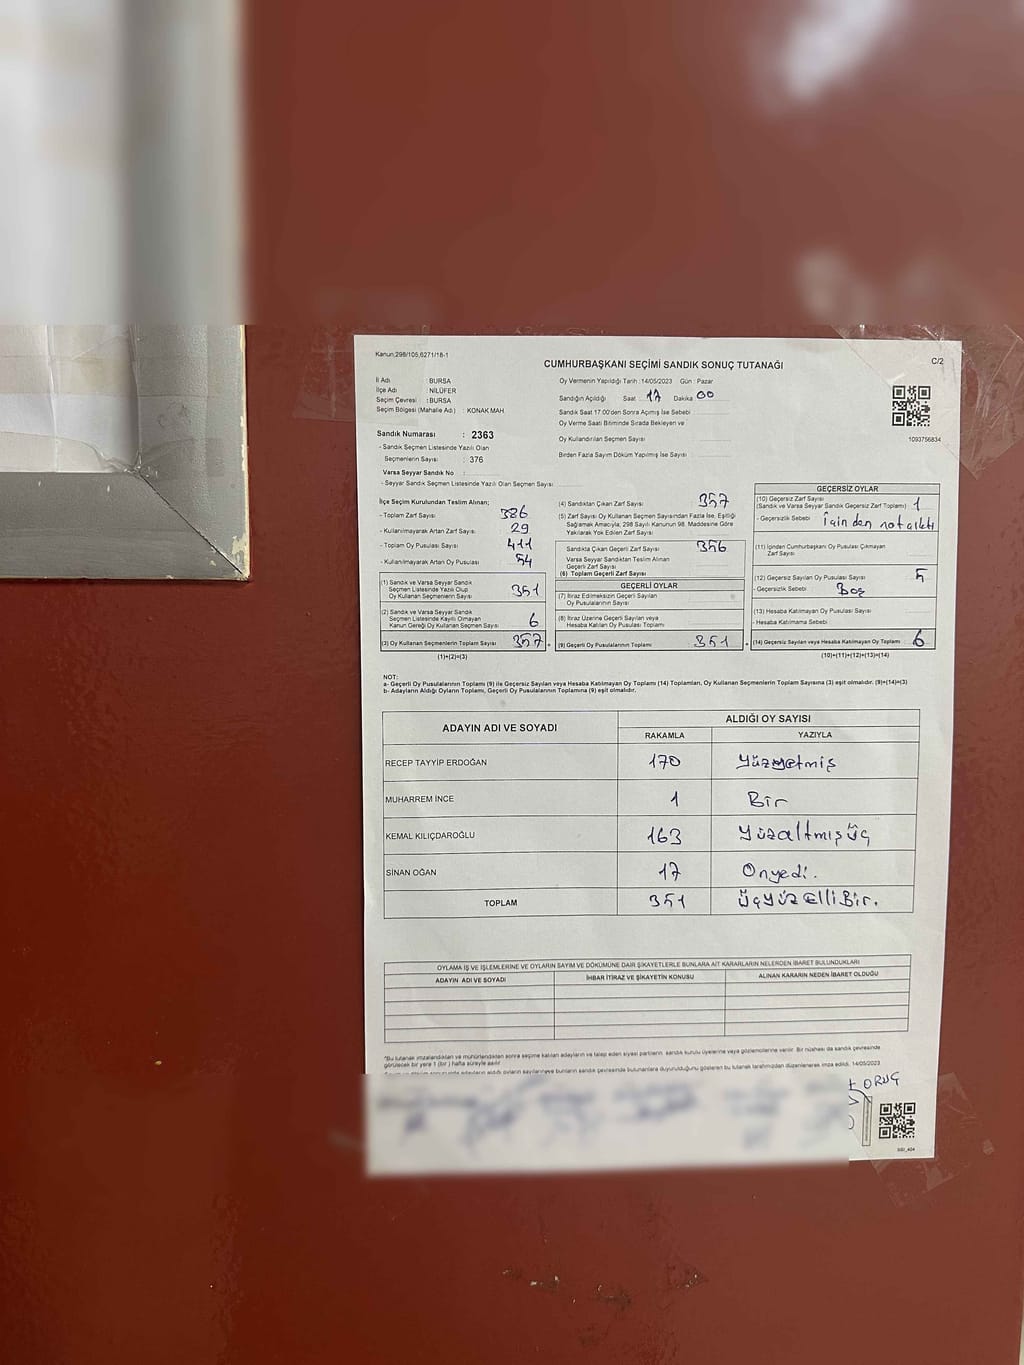 Kanun;298/105,6271/18-1
CUMHURBAŞKANI SEÇİMİ SANDIK SONUÇ TUTANAĞI
C/2
İl Adı : BURSA
İlçe Adı : NİLÜFER
Seçim Çevresi : BURSA
Seçim Bölgesi (Mahalle Adı) : KONAK MAH
Sandık Numarası : 2363
- Sandık Seçmen Listesinde Yazılı Olan
Seçmenlerin Sayısı : 376
Varsa Seyyar Sandık No :
- Seyyar Sandık Seçmen Listesinde Yazılı Olan Seçmen Sayısı :
Oy Vermenin Yapıldığı Tarih :14/05/2023 Gün : Pazar
Sandığın Açıldığı Saat 17 Dakika 00
Sandık Saat 17:00'den Sonra Açımış İse Sebebi
Oy Verme Saati Bitiminde Sırada Bekleyen ve
Oy Kullandırılan Seçmen Sayısı
Birden Fazla Sayım Döküm Yapılmış İse Sayısı
1093756834
İlçe Seçim Kurulundan Teslim Alınan;
- Toplam Zarf Sayısı : 386
- Kullanılmayarak Artan Zarf Sayısı : 29
- Toplam Oy Pusulası Sayısı : 411
- Kullanılmayarak Artan Oy Pusulası : 54
(1) Sandık ve Varsa Seyyar Sandık
Seçmen Listesinde Yazılı Olup
Oy Kullanan Seçmenlerin Sayısı 351
(2) Sandık ve Varsa Seyyar Sandık
Seçmen Listesinde Kayıtlı Olmayan
Kanun Gereği Oy Kullanan Seçmen Sayısı 6
(3) Oy Kullanan Seçmenlerin Toplam Sayısı 357
(1)+(2)=(3)
(4) Sandıktan Çıkan Zarf Sayısı : 357
(5) Zarf Sayısı Oy Kullanan Seçmen Sayısından Fazla İse, Eşitliği
Sağlamak Amacıyla, 298 Sayılı Kanunun 98. Maddesine Göre
Yakılarak Yok Edilen Zarf Sayısı
Sandıkta Çıkan Geçerli Zarf Sayısı 356
Varsa Seyyar Sandıktan Teslim Alınan
Geçerli Zarf Sayısı
(6) Toplam Geçerli Zarf Sayısı
GEÇERLİ OYLAR
(7) İtiraz Edilmeksizin Geçerli Sayılan
Oy Pusulalarının Sayısı
(8) İtiraz Üzerine Geçerli Sayılan veya
Hesaba Katılan Oy Pusulası Toplamı
(9) Geçerli Oy Pusulalarının Toplamı 351
GEÇERSİZ OYLAR
(10) Geçersiz Zarf Sayısı
(Sandık ve Varsa Seyyar Sandık Geçersiz Zarf Toplamı) 1
- Geçersizlik Sebebi : İçinden not çıktı
(11) İçinden Cumhurbaşkanı Oy Pusulası Çıkmayan
Zarf Sayısı
(12) Geçersiz Sayılan Oy Pusulası Sayısı 5
- Geçersizlik Sebebi : Boş
(13) Hesaba Katılmayan Oy Pusulası Sayısı
- Hesaba Katılmama Sebebi
(14) Geçersiz Sayılan veya Hesaba Katılmayan Oy Toplamı 6
(10)+(11)+(12)+(13)=(14)
NOT:
a- Geçerli Oy Pusulalarının Toplamı (9) ile Geçersiz Sayılan veya Hesaba Katılmayan Oy Toplamı (14) Toplamları, Oy Kullanan Seçmenlerin Toplam Sayısına (3) eşit olmalıdır. (9)+(14)=(3)
b- Adayların Aldığı Oyların Toplamı, Geçerli Oy Pusulalarının Toplamına (9) eşit olmalıdır.
ADAYIN ADI VE SOYADI
ALDIĞI OY SAYISI
RAKAMLA YAZIYLA
RECEP TAYYİP ERDOĞAN 170 Yüzyetmiş
MUHARREM İNCE 1 Bir
KEMAL KILIÇDAROĞLU 163 Yüzaltmışüç
SİNAN OĞAN 17 Onyedi.
TOPLAM 351 ÜçyüzelliBir.
OYLAMA İŞ VE İŞLEMLERİNE VE OYLARIN SAYIM VE DÖKÜMÜNE DAİR ŞİKAYETLERLE BUNLARA AİT KARARLARIN NELERDEN İBARET BULUNDUKLARI
ADAYIN ADI VE SOYADI İHBAR İTİRAZ VE ŞİKAYETİN KONUSU ALINAN KARARIN NEDEN İBARET OLDUĞU
"Bu tutanak imzalandıktan ve mühürlendikten sonra seçime katılan adayların ve talep eden siyasi partilerin sandık kurulu üyelerine veya gözlemcilerine verilir. Bir nüshası da sandık çevresinde
görülecek bir yere 1 (bir) hafta süreyle asılır
adayların aldığı oyların sayılarını ve bunların sandık çevresinde bulunanlara duyurulduğunu gösteren bu tutanak tarafımızdan düzenlenerek imza edildi. 14/05/2023
ORUÇ